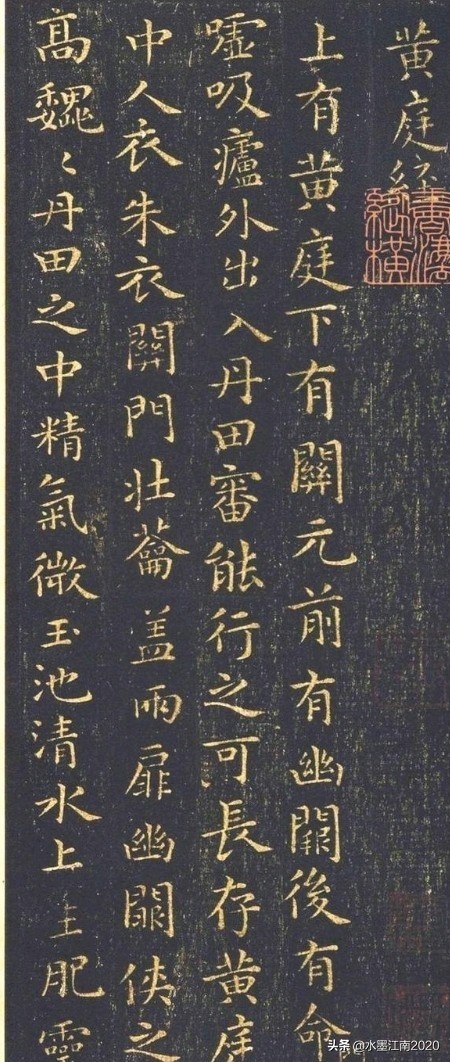 黄庭經
上有黄庭下有關元前有幽闕後有命
嘘吸廬外出入丹田審能行之可長存黄庭
中人衣朱衣關門壯蘥盖兩扉幽闕俠之
高巍〻丹田之中精氣微玉池清水上生肥靈
头条@水墨江南2020